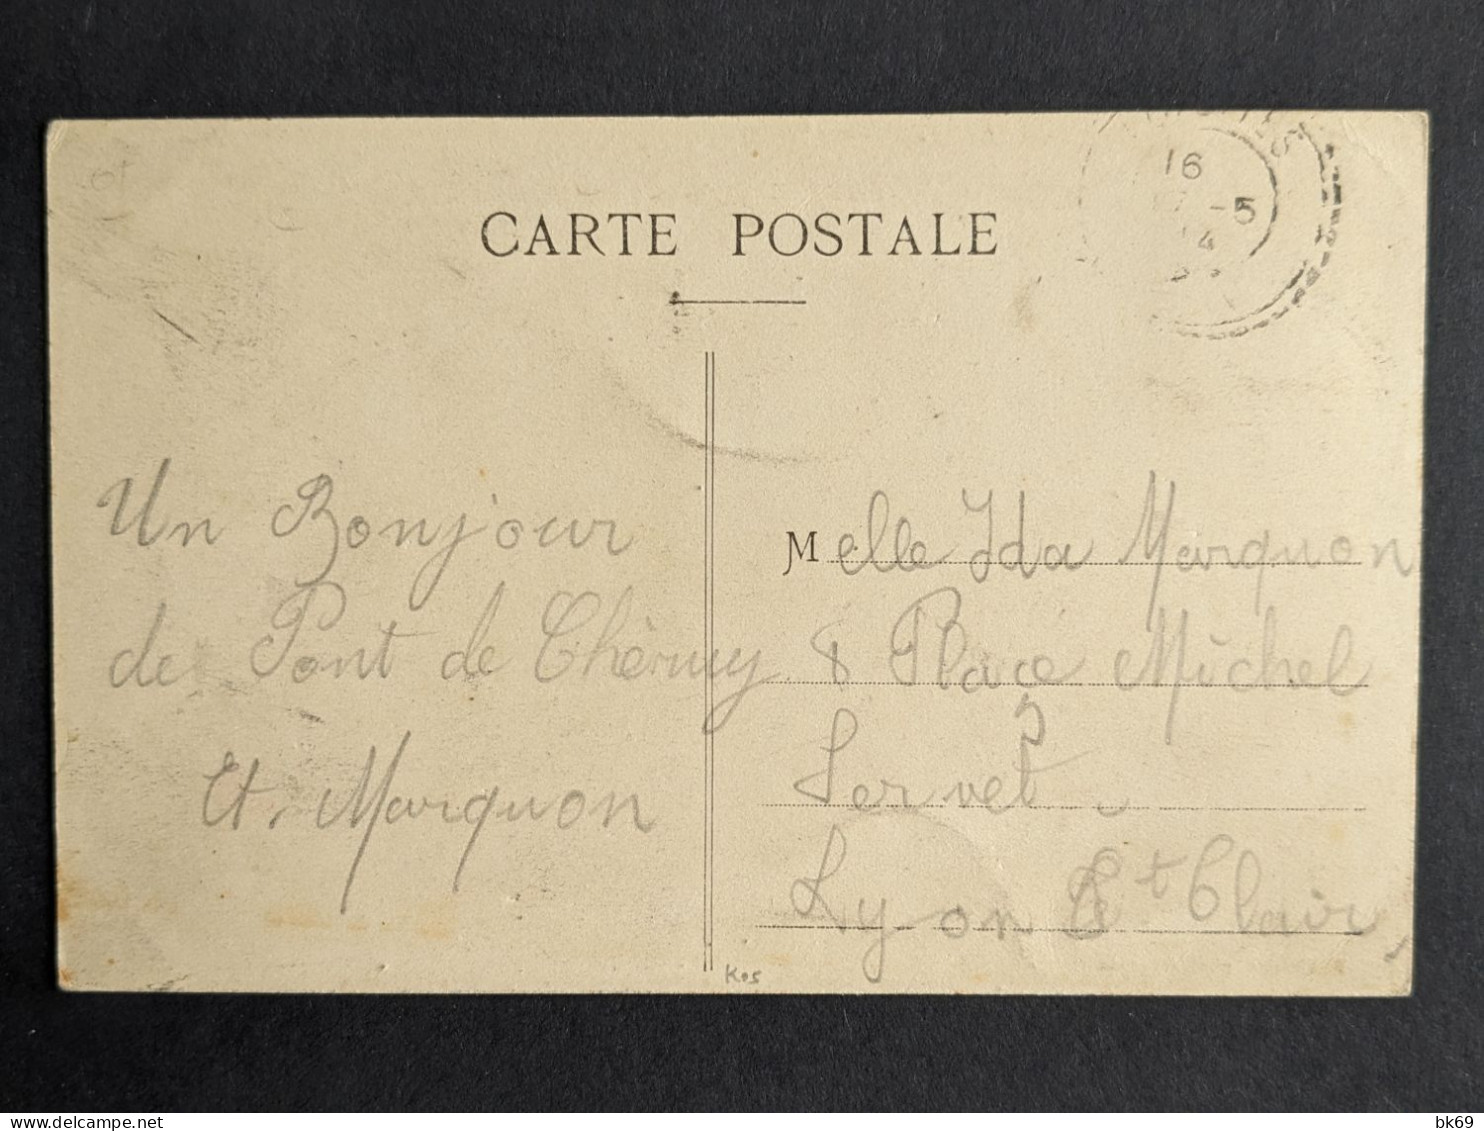 CARTE POSTALE
16
-5
4
Un Bonjour
de Pont de Chéruy
Et. Marquon
Melle Ida Marquon
8 Place Michel
Servet
Lyon St Clair
K05
delcampe.net
bk69